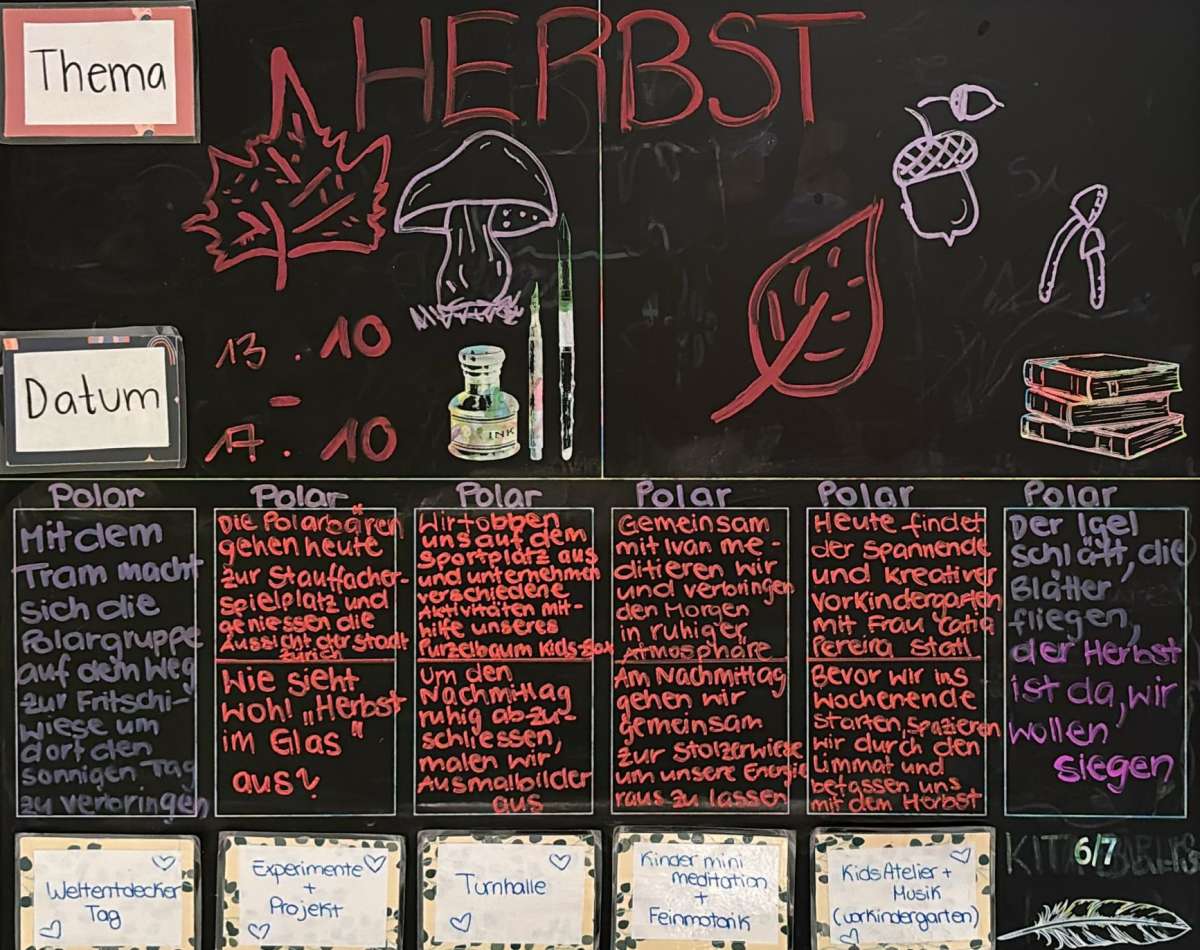 Thema
HERBST
Datum
13.10
-
17.10
INK
Polar
Mit dem
Tram macht
sich die
Polargruppe
auf dem Weg
zur Fritschi-
wiese um
dort den
sonnigen Tag
zu verbringen
Polar
Die Polarbären
gehen heute
zur Stauffacher-
spielplatz und
geniessen die
Aussicht der Stadt
Zürich
Wie sieht
wohl „Herbst
im Glas"
aus?
Polar
Wir tobben
uns auf dem
Sportplatz aus
und unternehmen
verschiedene
Aktivitäten mit-
hilfe unseres
Purzelbaum Kids-Box
Um den
Nachmittag
ruhig abzu-
schliessen,
malen wir
Ausmalbilder
aus
Polar
Gemeinsam
mit Ivan me-
ditieren wir
und verbringen
den Morgen
in ruhiger
Atmosphäre
Am Nachmittag
gehen wir
gemeinsam
zur Stolzerwiese
um unsere Energie
raus zu lassen
Polar
Heute findet
der spannende
und kreativer
Vorkindergarten
mit Frau Catia
Pereira Statt
Bevor wir ins
Wochenende
starten, spazieren
wir durch den
Limmat und
befassen uns
mit dem Herbst
Polar
Der Igel
schläft, die
Blätter
fliegen,
der Herbst
ist da, wir
wollen
siegen
Weltentdecker
Tag
Experimente
+
Projekt
Turnhalle
Kinder mini
meditation
+
Feinmotorik
Kids Atelier +
Musik
(vorkindergarten)
6/7